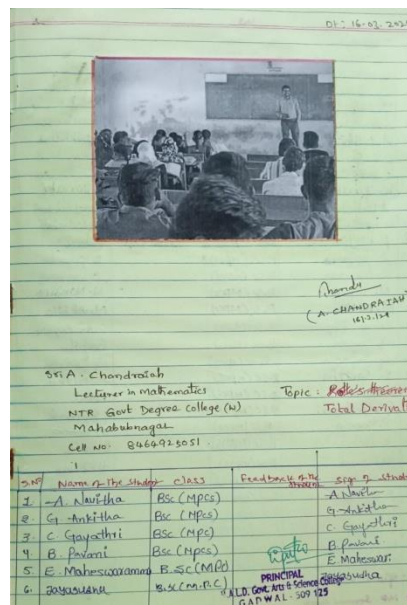 Dt: 16-03-202
(A. CHANDRAIAH
Sri A. Chandraiah
Lecturer in Mathematics
Topic : Rolle's theorem
NTR Govt Degree college (W)
Total Derivat
Mahabubnagar
Cell No: 8464925051.
S.No Name of the Student class Feedback of the student Sign of stude
1 A. Navitha BSc (MPCs) A Navitha
2. G Ankitha BSc (MPCs) G. Ankitha
3. C Gayathri BSc (MPC) C Gayathri
4. B. Pavani BSc (MPC) B. Pavani
5. E. Maheswaramma B.Sc (MPC) E Maheswari
6. Jayasudha B.Sc (M.P.C) Jayasudha
PRINCIPAL
A.L.D. Govt. Arts & Science College
GADWAL - 509 125